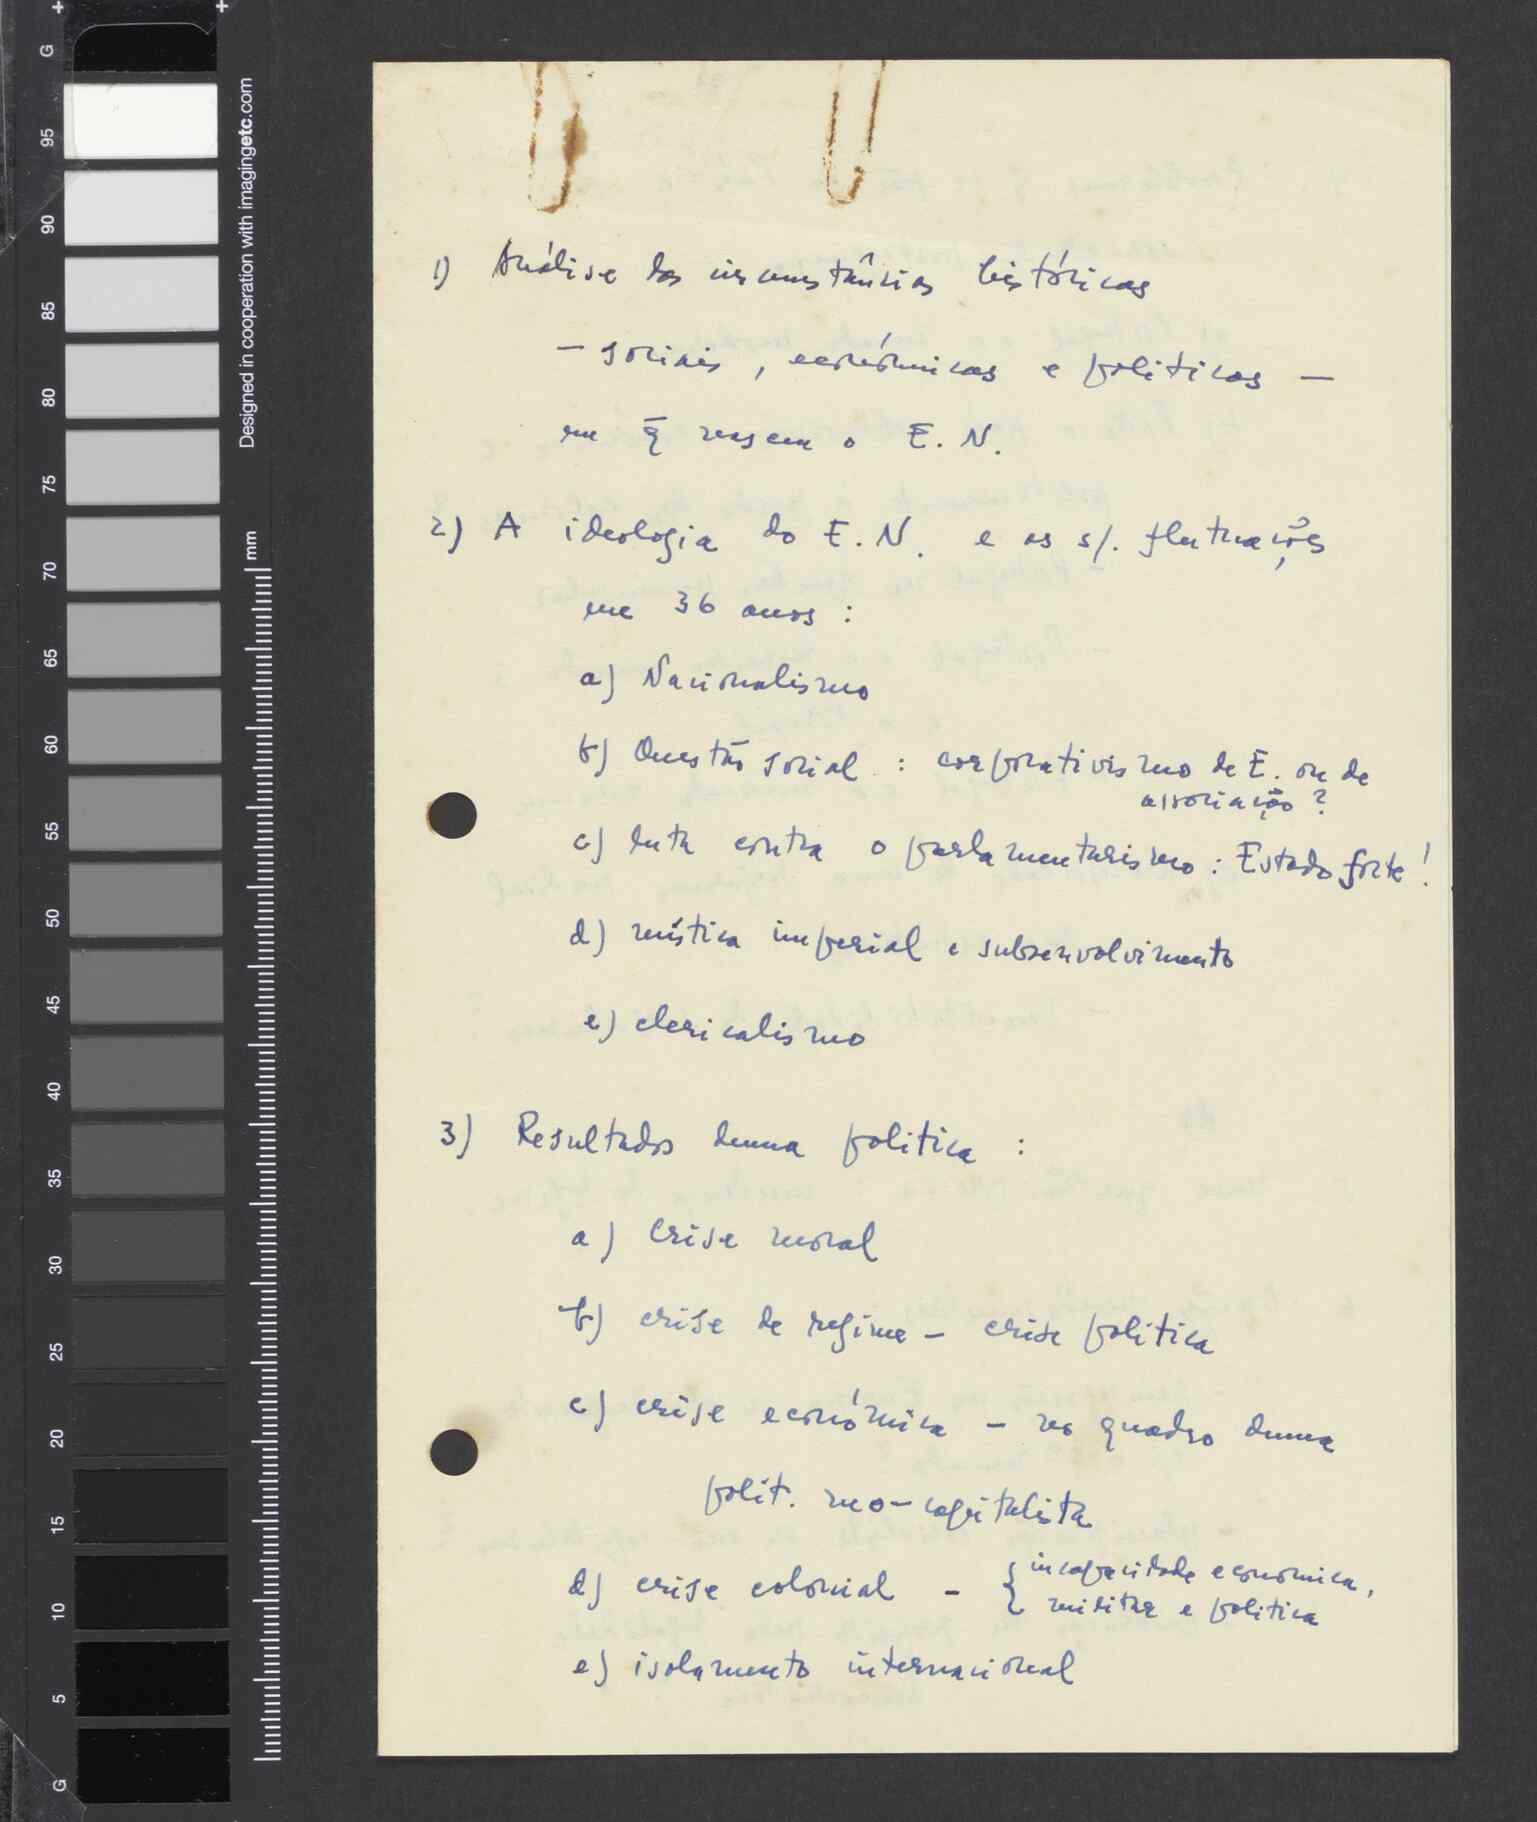 1) Análise das circunstâncias históricas
– sociais, económicas e politicas –
em q̄ nascem o E. N.
2) A ideologia do E. N. e as s/. flutuações
em 36 anos :
a) Nacionalismo
b) Questão social : corporativismo de E. ou de
associação ?
c) luta contra o parlamentarismo : Estado forte !
d) mística imperial e subsenvolvimento
e) clericalismo
3) Resultados duma politica :
a) Crise moral
b) crise de regime – crise politica
c) crise económica – no quadro duma
polit. neo-capitalista
d) crise colonial – { incapacidade economica,
militar e politica
e) isolamento internacional
Designed in cooperation with imagingetc.com
mm
G
95
90
85
80
75
70
65
60
55
50
45
40
35
30
25
20
15
10
5
G